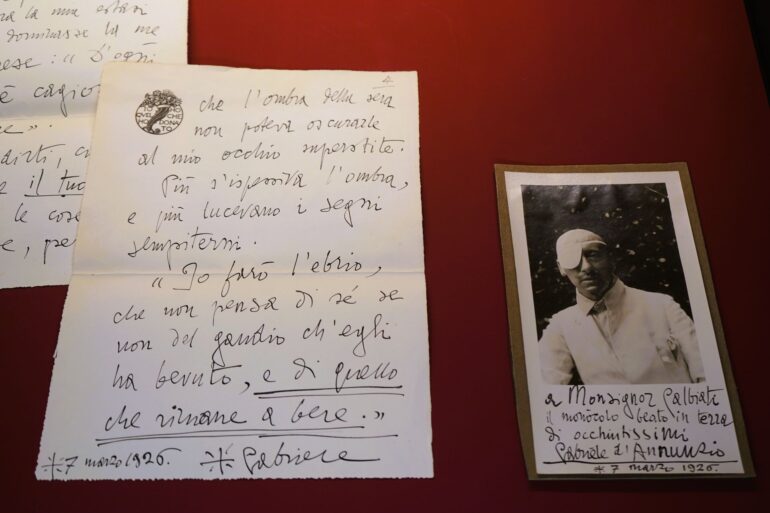 ra la mia estasi
dominasse la me
: « D'ogni
è cagio
».
dirti,
il tuo
le cose
e, per
4
IO HO
QUEL CHE
HO DONA
TO
che l'ombra della sera
non poteva oscurarle
al mio occhio superstite.
Più s'ispessiva l'ombra,
e più lucevano i segni
sempiterni.
« Io farò l'ebrio,
che non pensa di sé se
non del gaudio ch'egli
ha bevuto, e di quello
che rimane a bere. »
7 marzo 1926. Gabriele
a Monsignor Galbiati
il monocolo beato in terra
di occhiutissimi
Gabriele d'Annunzio
7 marzo 1926.